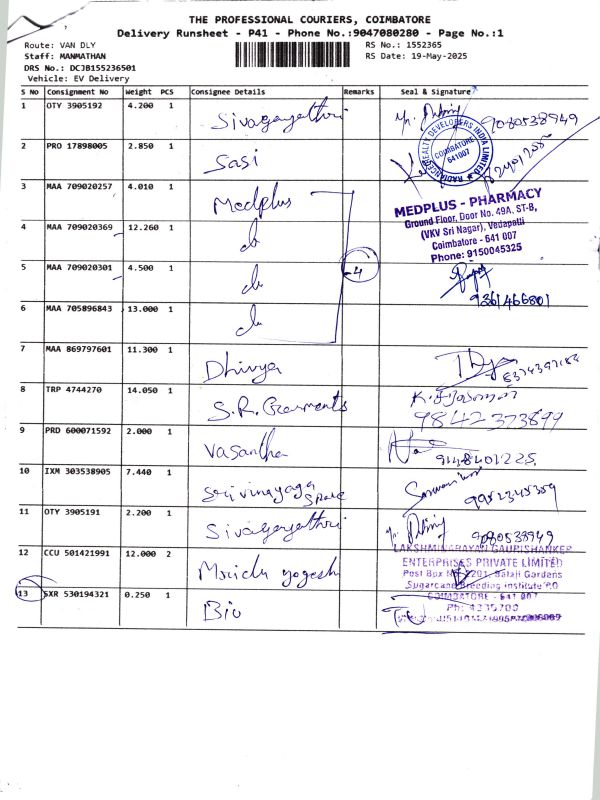 THE PROFESSIONAL COURIERS, COIMBATORE
Delivery Runsheet - P41 - Phone No.:9047080280 - Page No.:1
Route: VAN DLY
RS No.: 1552365
Staff: MANMATHAN
RS Date: 19-May-2025
DRS No.: DCJB155236501
Vehicle: EV Delivery
S No Consignment No Weight PCS Consignee Details Remarks Seal & Signature
1 OTY 3905192 4.200 1 Sivagayathri 9080538949
2 PRO 17898005 2.850 1 Sasi
RADIANCE REALTY DEVELOPERS INDIA LIMITED
COIMBATORE
641007
3 MAA 709020257 4.010 1 Medplus
MEDPLUS - PHARMACY
Ground Floor, Door No. 49A, ST-B,
(VKV Sri Nagar), Vedapatti
Coimbatore - 641 007
Phone: 9150045325
4 MAA 709020369 12.260 1 do
5 MAA 709020301 4.500 1 do 4
9361466801
6 MAA 705896843 13.000 1 do
7 MAA 869797601 11.300 1 Dhivya
8 TRP 4744270 14.050 1 S.R. Garments 9842373899
9 PRD 600071592 2.000 1 Vasantha 9148401225
10 IXM 303538905 7.440 1 Sri vinayaga Spare 9952345359
11 OTY 3905191 2.200 1 Sivagayathri 9080533949
12 CCU 501421991 12.000 2 Mridu yogesh
LAKSHMINARAYAN GAURISHANKER
ENTERPRISES PRIVATE LIMITED
Post Box No. 2201, Balaji Gardens
Sugarcane Breeding Institute P.O
COIMBATORE - 641 007
13 SXR 530194321 0.250 1 Bio